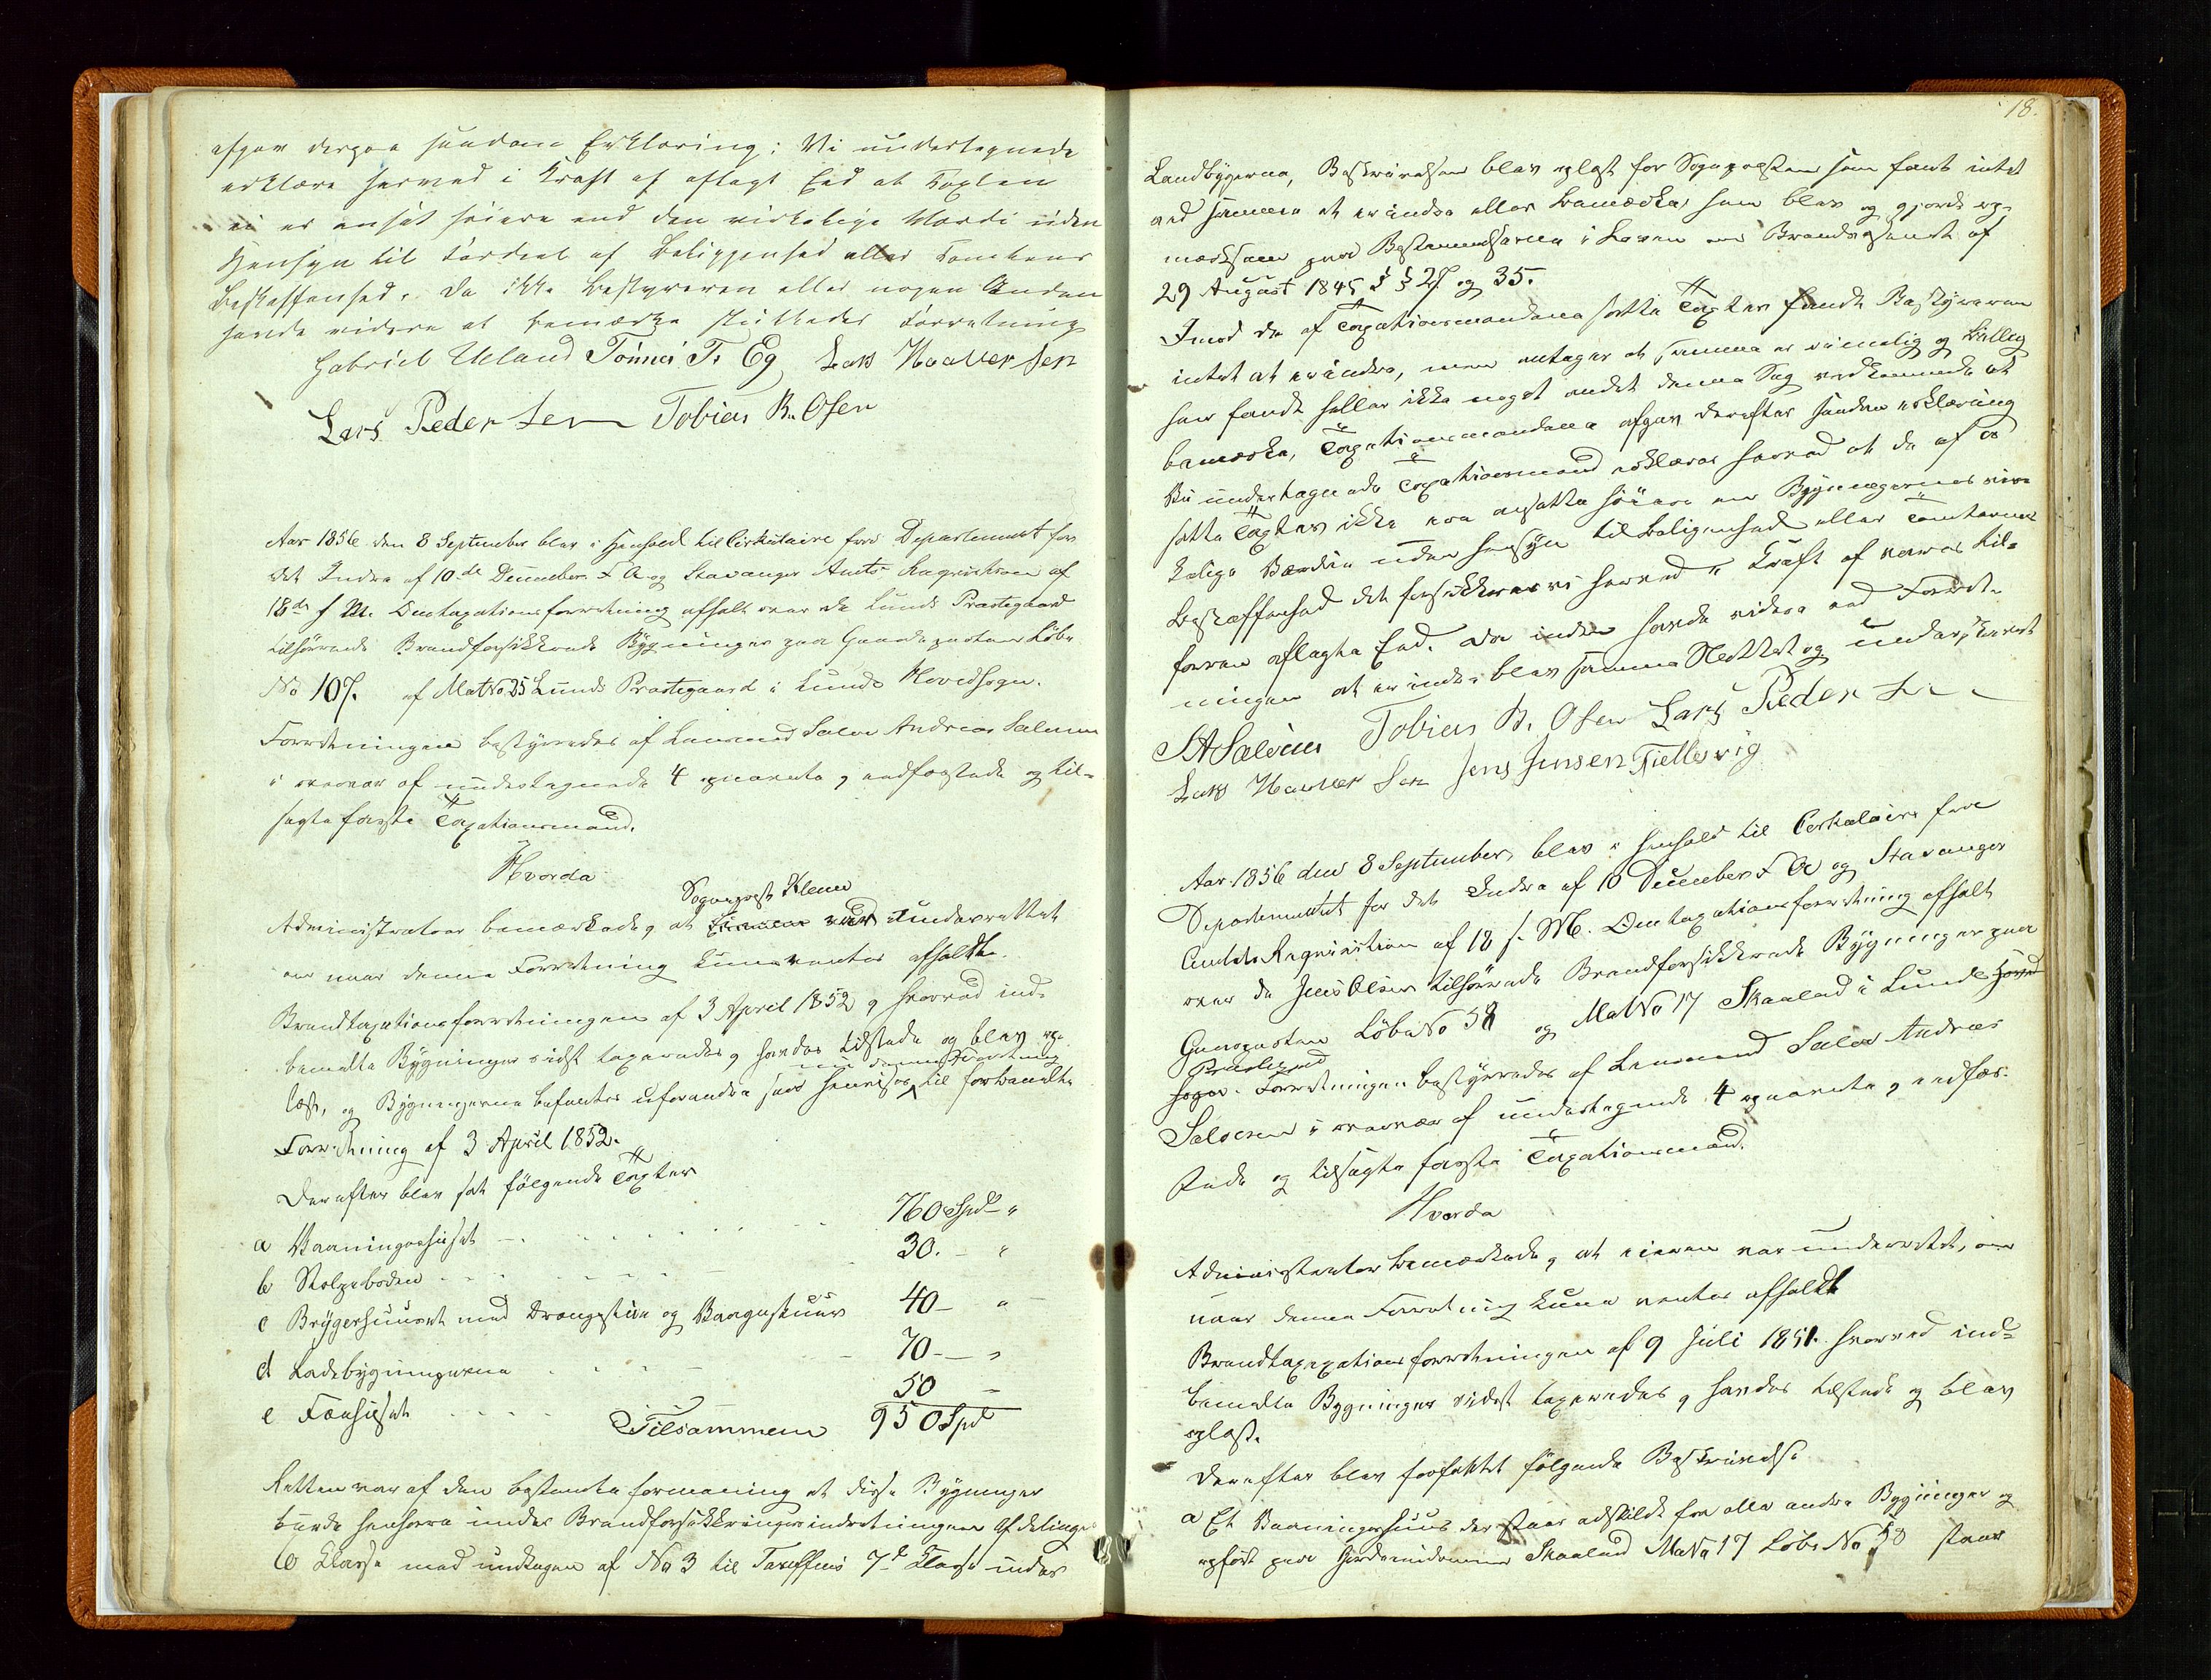 afgav derpaa saadan Erklæring: Vi undertegnede
erklære herved i Kraft af aflagt Eed at Taxten
ei er ansat høiere end den virkelige Værdi uden
Hensyn til Fordeel af Beliggenhed eller Tomtens
Beskaffenhed. Da ikke Bestyreren eller nogen Anden
havde videre at bemærke sluttedes Forretning
Gabriel Ueland Tönnes T. Eg Lars Haaversen
Lars Pedersen Tobias B. Osen
Aar 1856 den 8 September blev i Henhold til Cirkulaire fra Departementet for
det Indre af 10de December F. A. og Stavanger Amts Reqvisition af
18de f. M. Omtaxationsforretning afholt over de Lunds Præstegaard
tilhørende Brandforsikkrede Bygninger paa Gaardeparten Løbe
No 107. af MatNo 25 Lunds Præstegaard i Lunds Hovedsogn.
Forretningen bestyredes af Lensmand Salve Andreas Salvesen
i overvær af undertegnede 4 opnævnte, eedfæstede og til-
sagte faste Taxationsmænd.
Hvorda
Sognepræst Klem
Administrator bemærkede, at Eieren var underrettet
om naar denne Forretning kunne ventes afholdt.
Brandtaxationsforretningen af 3 April 1852, hvorved ind-
bemeldte Bygninger sidst taxeredes, havdes tilstede og blev op-
nu denne Forretning
læst, og Bygningerne befantes uforandre hvis henvises til forbemeldte
Forretning af 3 April 1852.
Derefter blev sat følgende Taxter
a Vaaningshuset 760 Spd "
b Stolpeboden 30. - "
c Bryggerhuuset med Drengestue og Vaagneskuur 40 - "
d Ladebygningerne 70 - "
e Fæehuset 50 -
Tilsammen 950 Spd
Retten var af den bestemte formening at disse Bygninger
burde henhøre under Brandforsikkringsindretningens Afdelings
6 Klasse med undtagen af No 3 til Tariffens 7de Klasse under
18.
Landbyggerne, Beskrivelsen blev oplæst for Sognepræsten som fant intet
ved samme at erindre eller bemærke, som blev og gjorde op-
mærksom paa Bestemmelserne i Loven om Brandvæsenet af
29 August 1845 § § 27 og 35.
Imod de af Taxationsmændene satte Taxter fandt Bestyreren
intet at erindre, men antager at samme er rimelig og billig
han fandt heller ikke noget andet denne Sag vedkommende at
bemærke, Taxationsmændene afgav derefter saadan erklæring
Vii undertegnede Taxationsmænd erklærer herved at de af os
satte Taxter ikke ere ansatte høiere en Bygningernes vir-
kelige Værdie uden hensyn til Beligenhed eller Tomternes
beskaffenhed det forsikkrer vi herved i Kraft af vores til-
forne aflagte Eed. Da inden havde videre ved Forret-
ningen at erindre blev samme Sluttet og underskrevet
SA Salvesen Tobias B. Osen Lars Pedersen
Lars Haaversen Jens Jensen Fiellesvig
Aar 1856 den 8 September, blev i henhold til Cirkulaire fra
Departementet for det Indre af 10 December F. A. og Stavanger
Amts Reqvisition af 18 f. M. Omtaxationsforretning afholt
over de Jens Olsen tilhørende Brandforsikkrede Bygninger paa
Gaarparten LøbeNo 58 og MatNo 17 Skaaland i Lunds Hoved
Præstegjeld
sogn. Forretningen bestyredes af Lensmand Salve Andreas
Salvesen i overvær af undertegnede 4 opnævnte, eedfæs-
stede og tilsagte faste Taxationsmænd.
Hvorda
Administrator bemærkede, at eieren var underrettet, om
naar denne Forretning kunne ventes afholdt
Brandtaxationsforretningen af 9 Juli 1851. hvorved ind-
bemeldte Bygninger sidst taxeredes, havdes tilstede og blev
oplæst.
Derefter blev forfattet følgende Beskrivelse
a Et Vaaningshuus der staar adskildt fra alle andre Bygninger og
opført paa Jordeiendommen Skaaland MaNo 17 Løbe No 58 staar